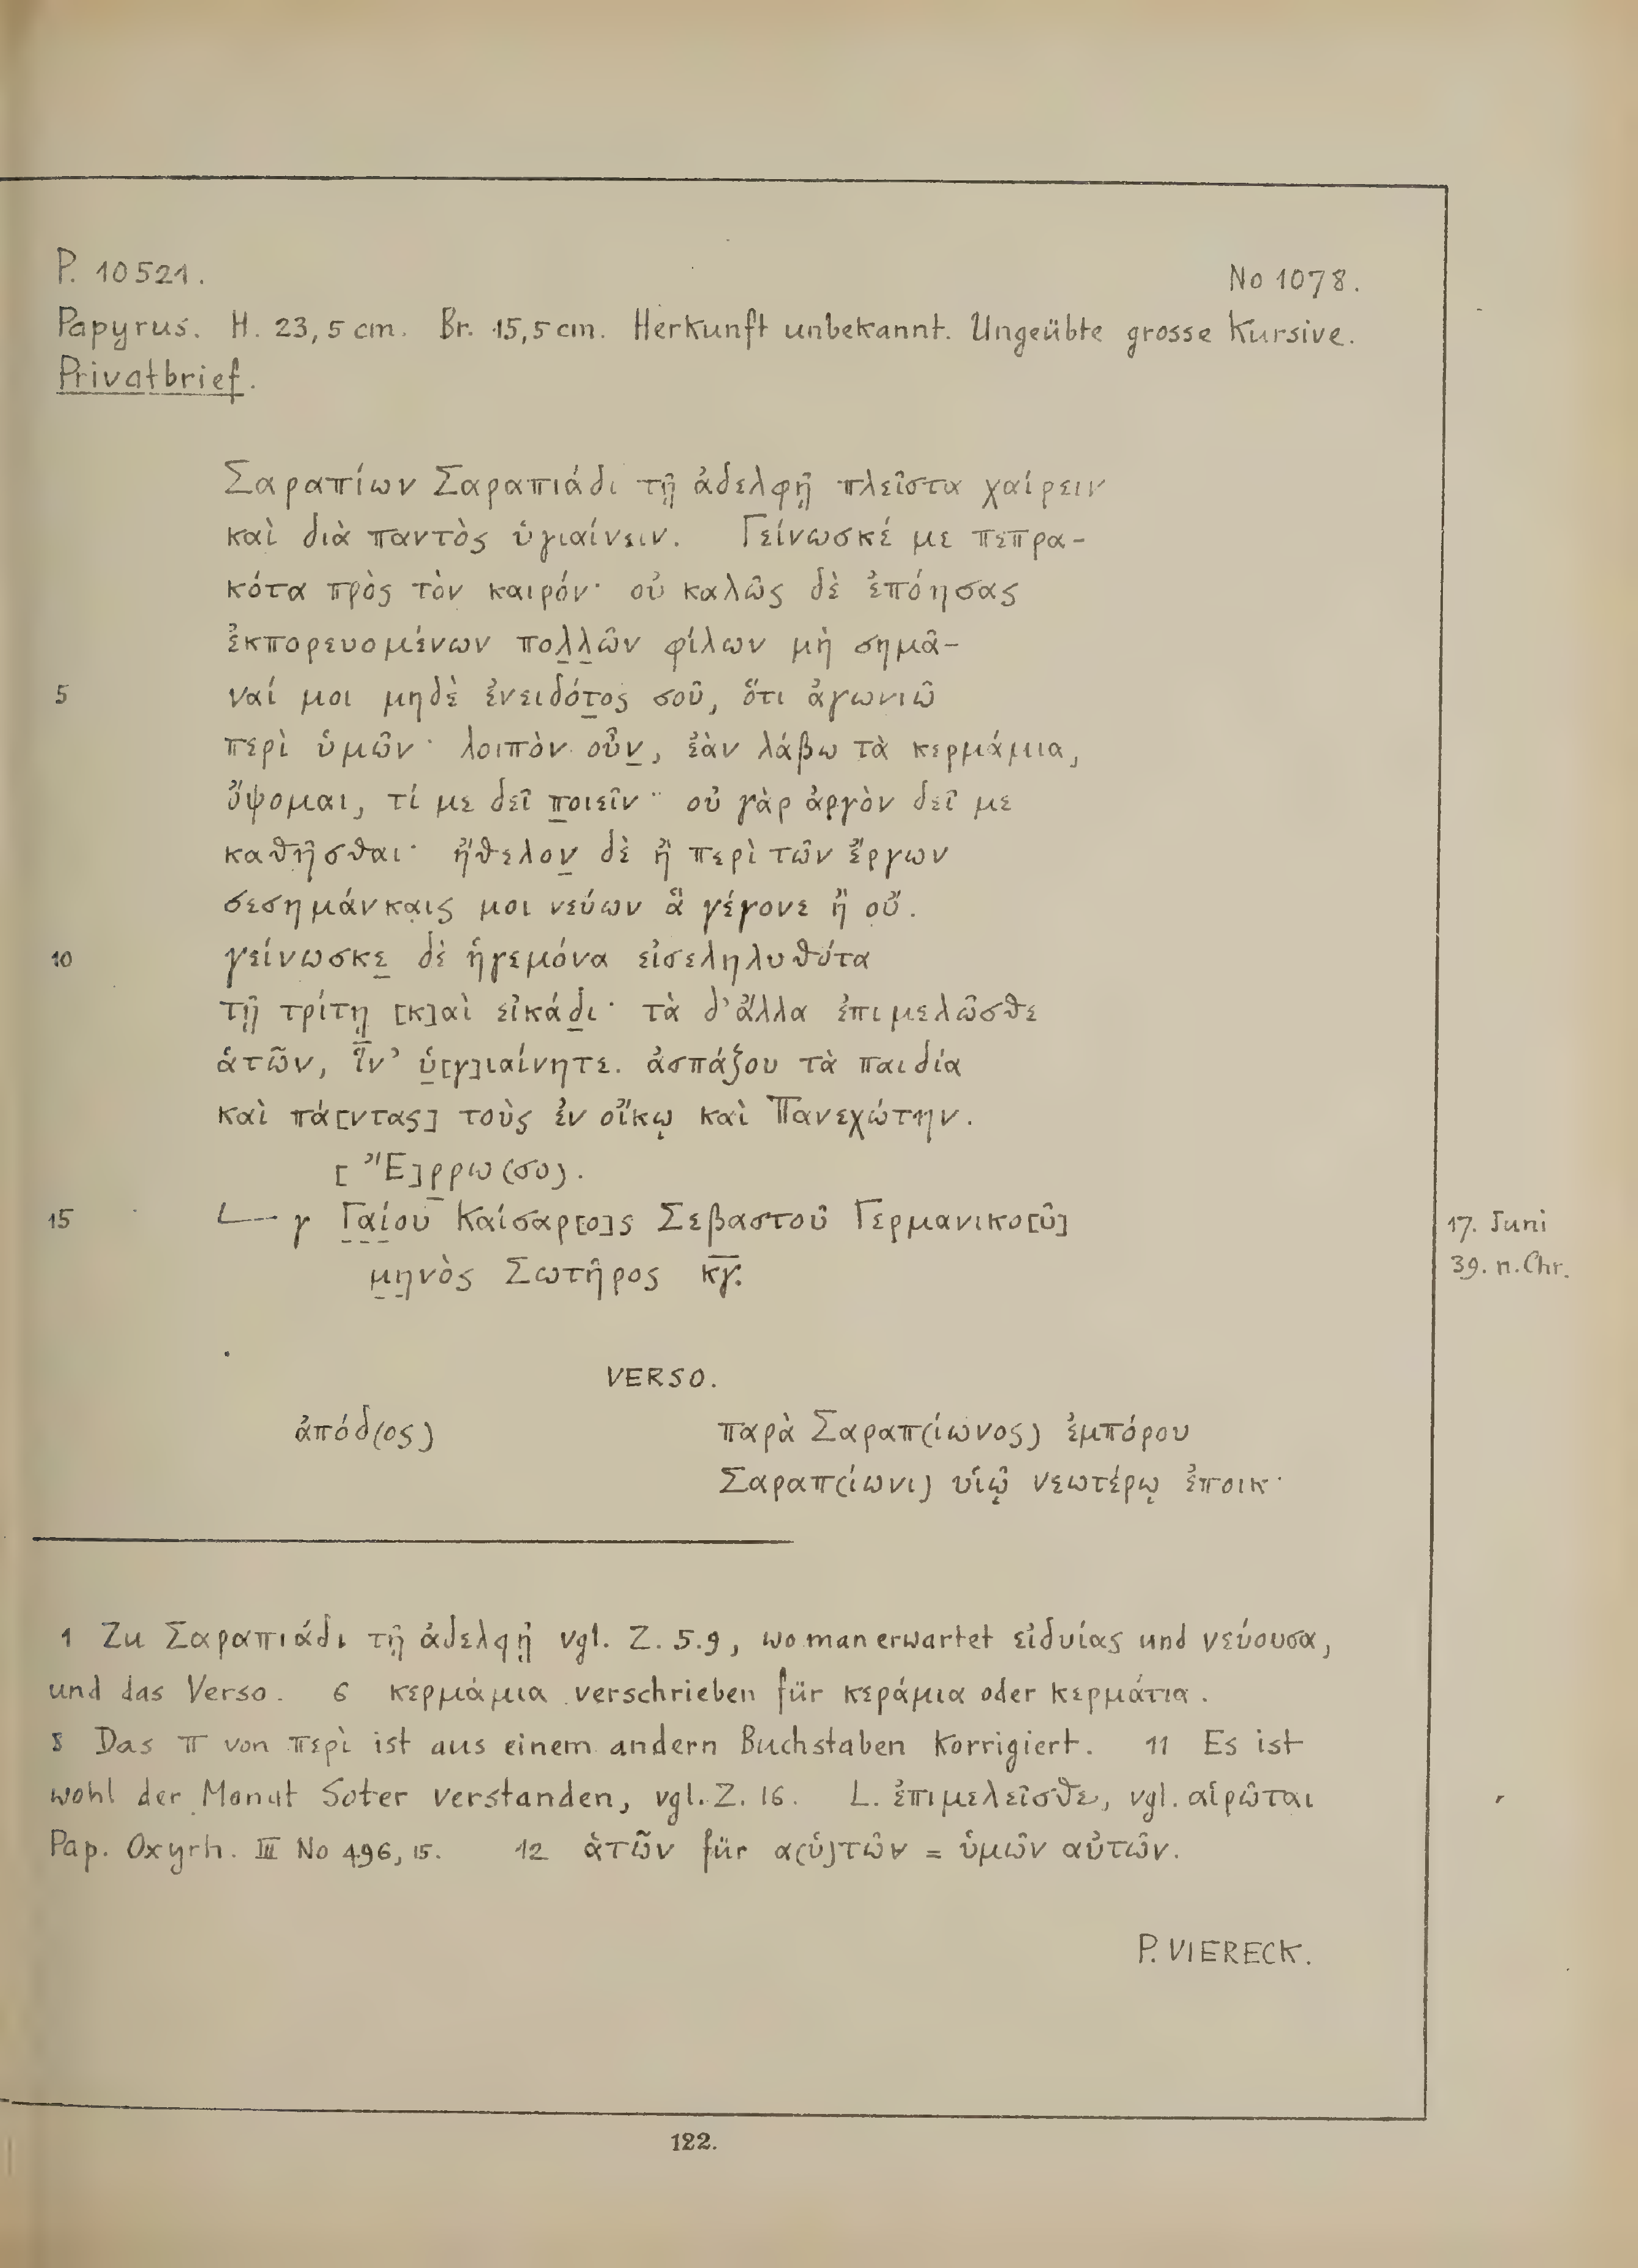 P. 10521. No 1078.
Papyrus. H. 23,5 cm. Br. 15,5 cm. Herkunft unbekannt. Ungeübte grosse Kursive.
Privatbrief.
Σαραπίων Σαραπιάδι τῇ ἀδελφῇ πλεῖστα χαίρειν
καὶ διὰ παντὸς ὑγιαίνειν. Γείνωσκέ με πεπρα-
κότα πρὸς τὸν καιρόν· οὐ καλῶς δὲ ἐπόησας
ἐκπορευομένων πολ̣λ̣ῶν φίλων μὴ σημᾶ-
5 ναί μοι μηδὲ ἐνειδότ̣ος σοῦ, ὅτι ἀγωνιῶ
περὶ ὑμῶν· λοιπὸν οὖν̣, ἐὰν λάβω τὰ κερμάμια,
ὄψομαι, τί με δεῖ π̣οιεῖν·· οὐ γὰρ ἀργὸν δεῖ με
καθῆσθαι· ἤθελον̣ δὲ ἢ περὶ τῶν ἔργων
σεσημάνκα̣ις μοι νεύων ἃ γέγονε ἢ οὔ.
10 γείνωσκε̣ δὲ ἡγεμόνα εἰσεληλυθότα
τῇ τρίτῃ̣ [κ]αὶ εἰκάδ̣ι· τὰ δ’ἄλλα ἐπιμελῶσθε
ἁτῶν, ἵν’ ὑ̣[γ]ιαίνητε. ἀσπάζου τὰ παιδία
καὶ πά[ντας] τοὺς ἐν οἴκῳ καὶ Πανεχώτην.
[Ἔ]ρ̣ρω(σο).
15 L γ Γ̣α̣ί̣ου Καίσαρ[ο]ς Σεβαστοῦ Γερμανικο[ῦ] 17. Juni
μ̣η̣νὸς Σωτῆρος κ̅γ̅. 39. n. Chr.
VERSO.
ἀπόδ(ος) παρὰ Σαραπ(ίωνος) ἐμπόρου
Σαραπ(ίωνι) υἱῷ νεωτέρῳ ἐποικ·
1 Zu Σαραπιάδι τῇ ἀδελφῇ vgl. Z. 5.9, wo man erwartet εἰδυίας und νεύουσα,
und das Verso. 6 κερμάμια verschrieben für κεράμια oder κερμάτια.
8 Das π von περὶ ist aus einem andern Buchstaben korrigiert. 11 Es ist
wohl der Monat Soter verstanden, vgl. Z. 16. L. ἐπιμελεῖσθε, vgl. αἱρῶται
Pap. Oxyrh. III No 496, 15. 12 ἁτῶν für α(ὑ)τῶν = ὑμῶν αὐτῶν.
P. VIERECK.
122.